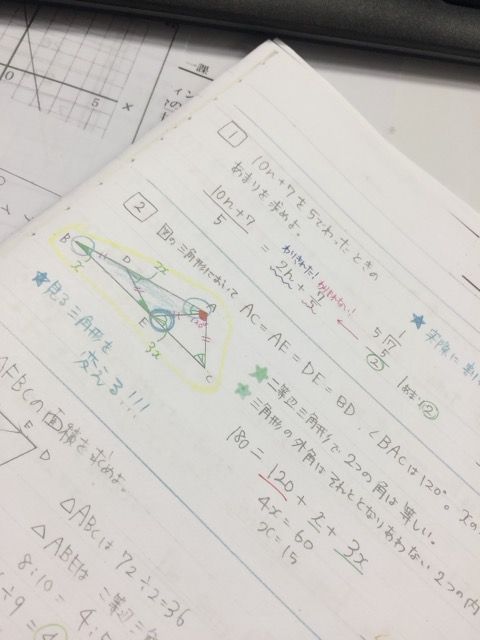 0
5
x
一課
1
10n+7を5でわったときの
あまりを求めよ。
10n+7
5
= 2n + 7/5
わりきれた!
わりきれない!
1
5)7
5
②
1あまり②
★実際に
2
図の三角形において
AC=AE=DE=BD. ∠BACは120°。xの
B
D
A
E
C
x
2x
3x
120°
★見る三角形を
変える!!!
★二等辺三角形で2つの角は等しい。
★三角形の外角はそれととなりあわない2つの内
180 = 120 + x + 3x
4x = 60
x = 15
の面積を求めよ。
E
D
△ABCは 72÷2=36
△ABEは 二等辺三角
8:10 =